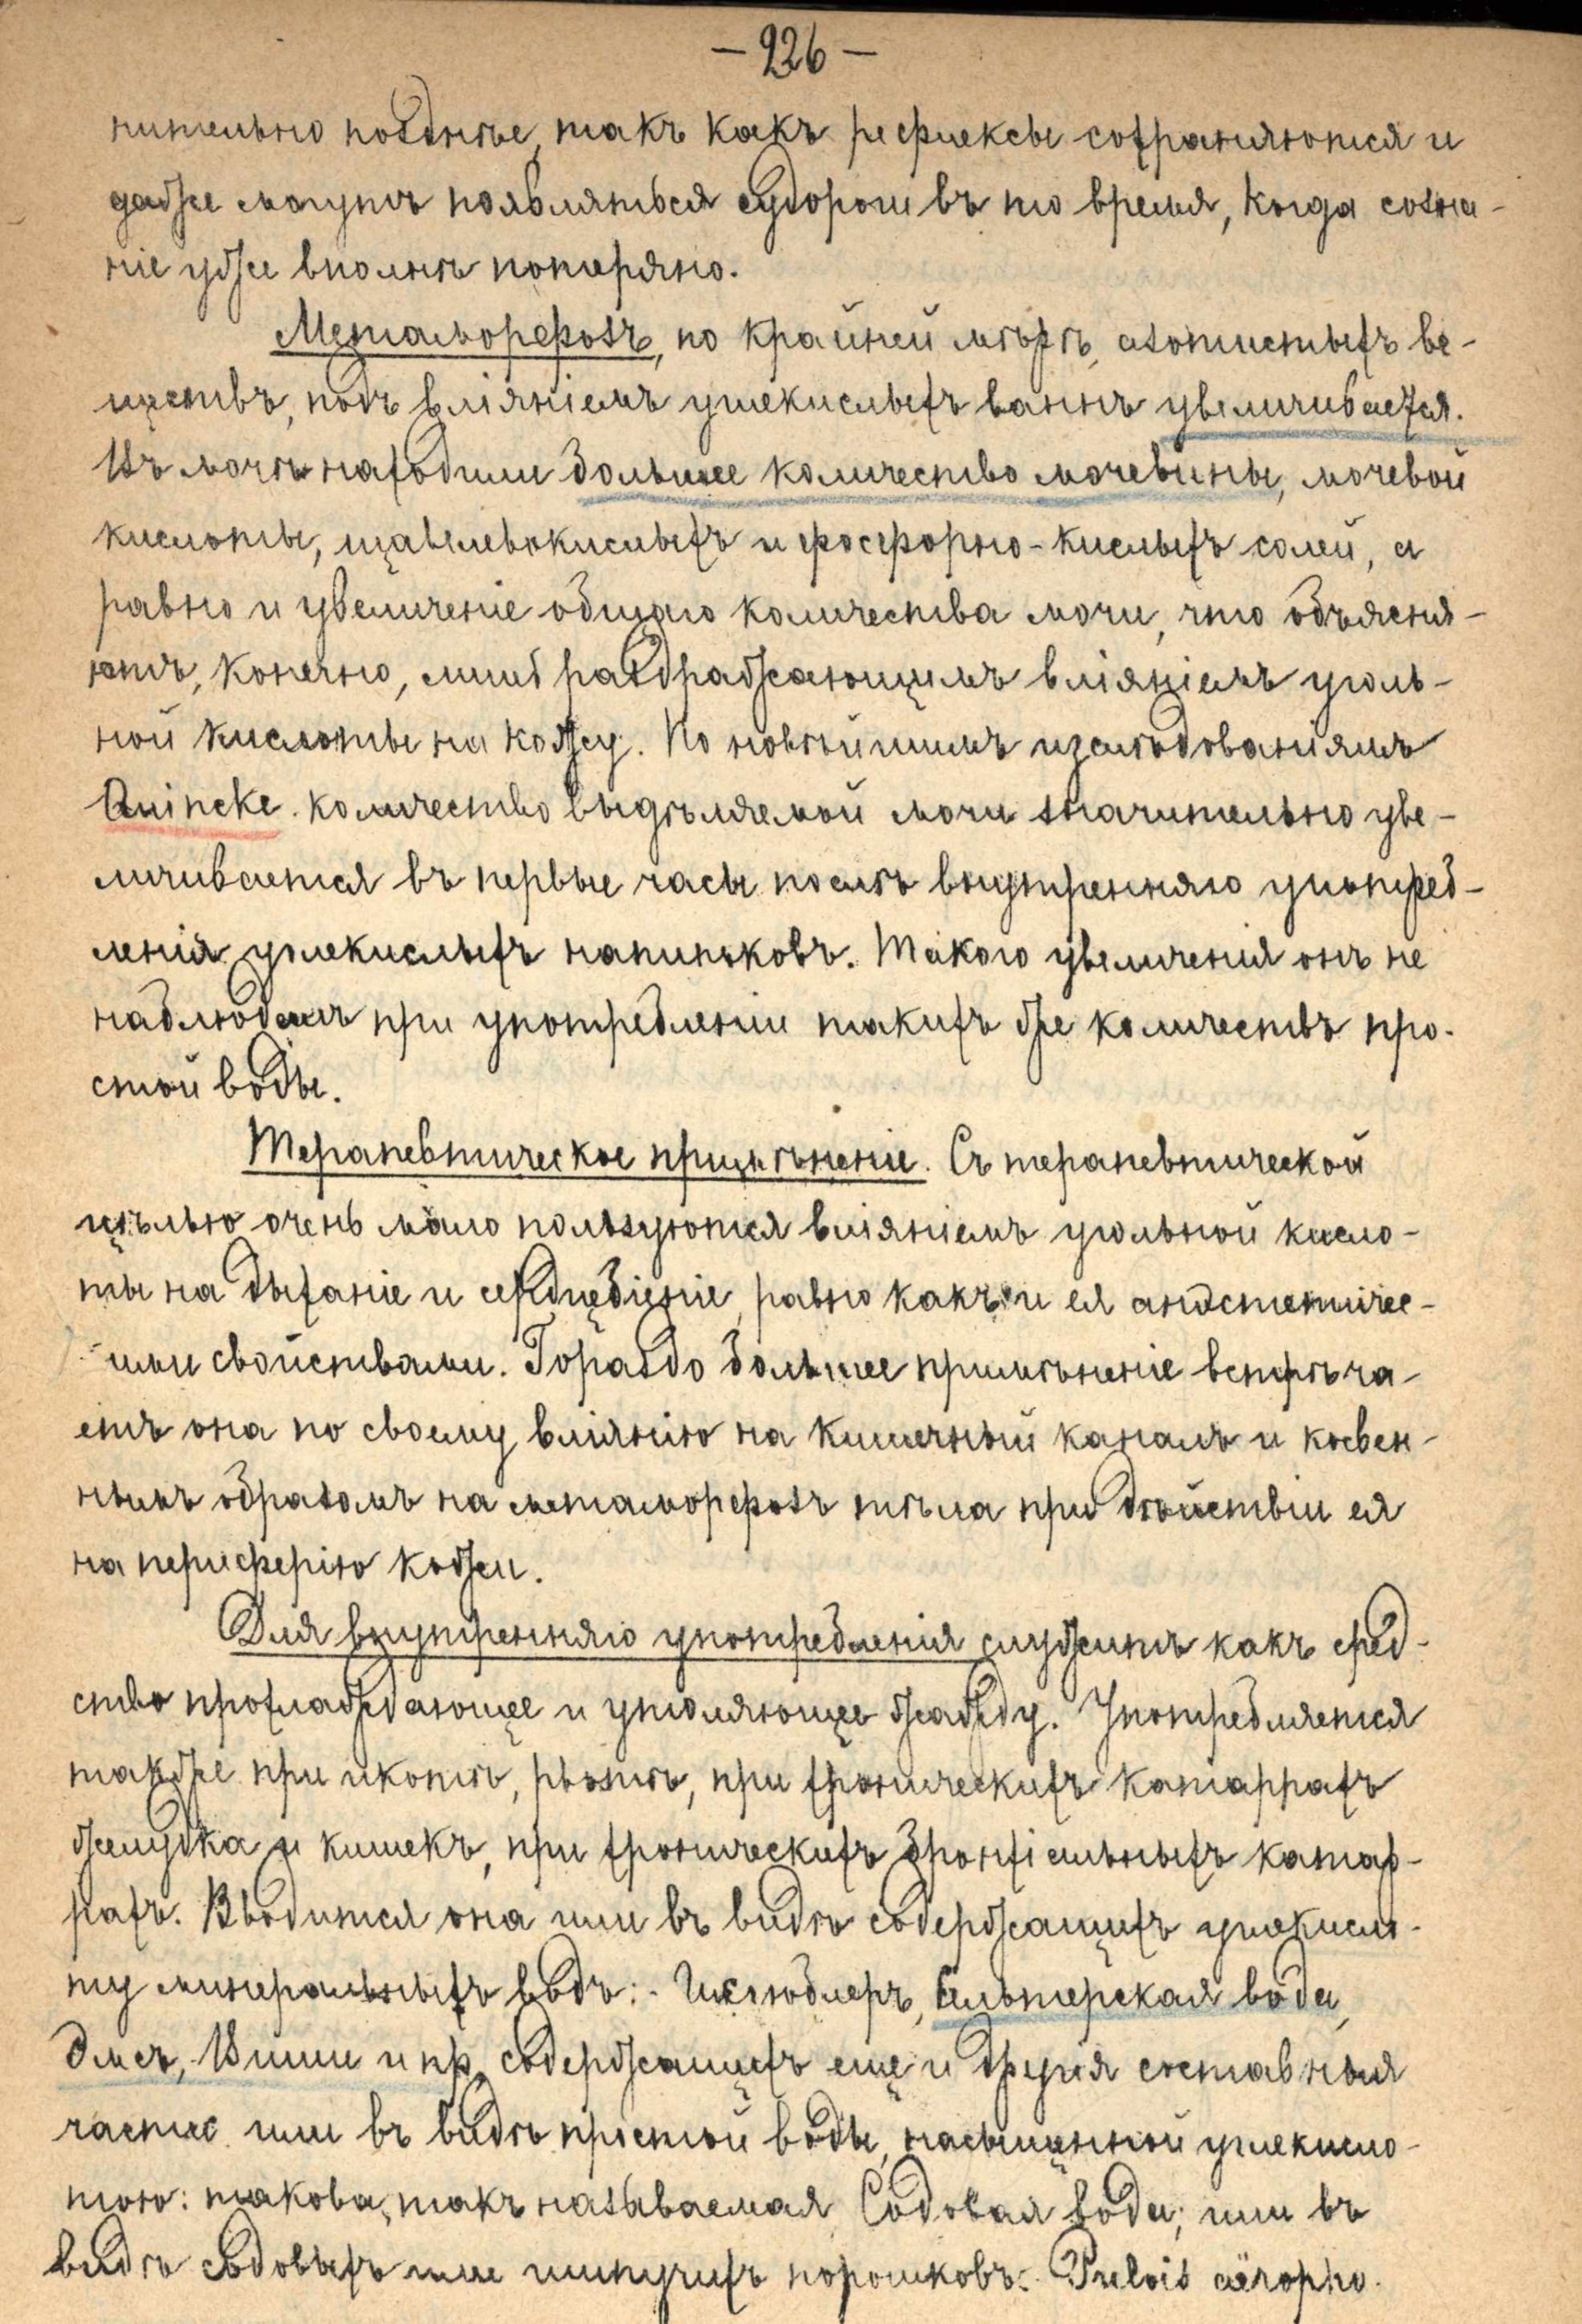 — 226 —
нительно позднѣе, такъ какъ рефлексы сохраняются и
даже могутъ появляться судороги въ то время, когда созна-
ніе уже вполнѣ потеряно.
Метаморфозъ, по крайней мѣрѣ, азотистыхъ ве-
ществъ, подъ вліяніемъ углекислыхъ ваннъ увеличивается.
Въ мочѣ находили большее количество мочевины, мочевой
кислоты, щавелевокислыхъ и фосфорно-кислыхъ солей, а
равно и увеличеніе общаго количества мочи, что объясня-
ютъ, конечно, лишь раздражающимъ вліяніемъ уголь-
ной кислоты на кожу. По новѣйшимъ изслѣдованіямъ
Quincke. количество выдѣляемой мочи значительно уве-
личивается въ первые часы послѣ внутренняго употреб-
ленія углекислыхъ напитковъ. Такого увеличенія онъ не
наблюдалъ при употребленіи такихъ же количествъ про-
стой воды.
Терапевтическое примѣненіе. Съ терапевтической
цѣлью очень мало пользуются вліяніемъ угольной кисло-
ты на дыханіе и сердцебіеніе, равно какъ и ея анэстетичес-
ими свойствами. Гораздо большее примѣненіе встрѣча-
етъ она по своему вліянію на кишечный каналъ и косвен-
нымъ образомъ на метаморфозъ тѣла при дѣйствіи ея
на периферію кожи.
Для внутренняго употребленія служитъ какъ сред-
ство прохлаждающее и утоляющее жажду. Употребляется
также при икотѣ, рвотѣ, при хроническихъ катаррахъ
желудка и кишекъ, при хроническихъ бронхіальныхъ катар-
рахъ. Вводится она или въ видѣ содержащихъ углекисло-
ту минеральныхъ водъ: - Гисгюблеръ, Сельтерская вода,
Эмсъ, Виши и пр. содержащихъ еще и другія составныя
части или въ видѣ простой воды, насыщенной углекисло-
тою: такова, такъ называемая Содовая вода; или въ
видѣ содовыхъ или шипучихъ порошковъ: Pulvis aëropho-